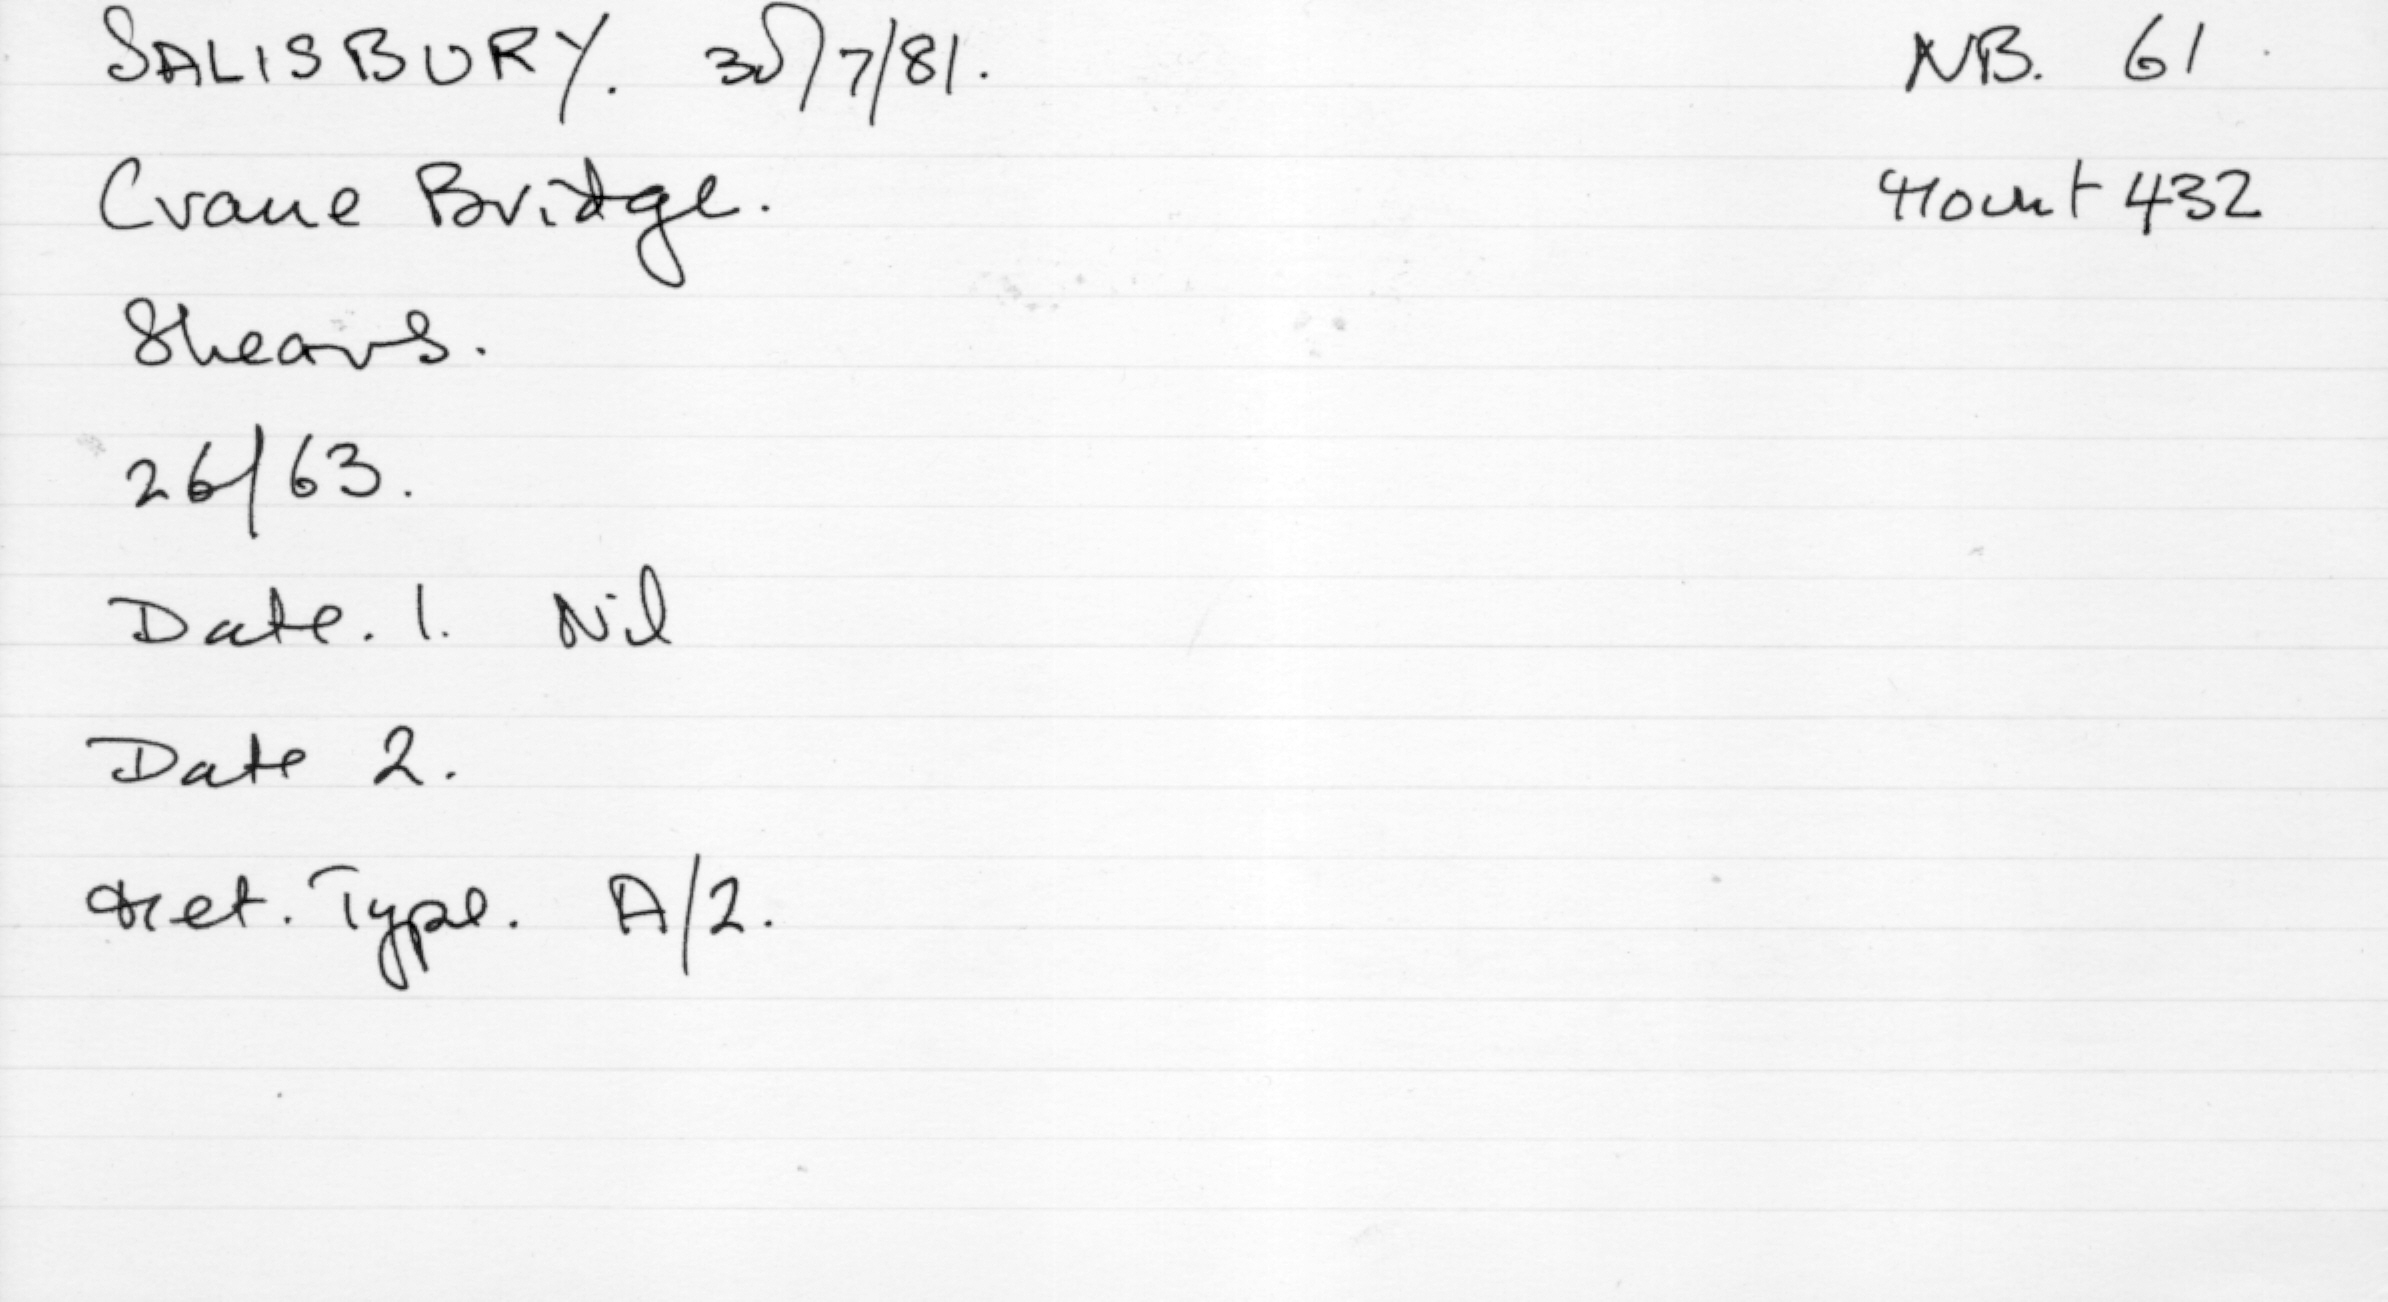 SALISBURY. 30/7/81. NB. 61
Crane Bridge. Mount 432
Shears.
26/63.
Date. 1. Nil
Date 2.
Met. Type. A/2.